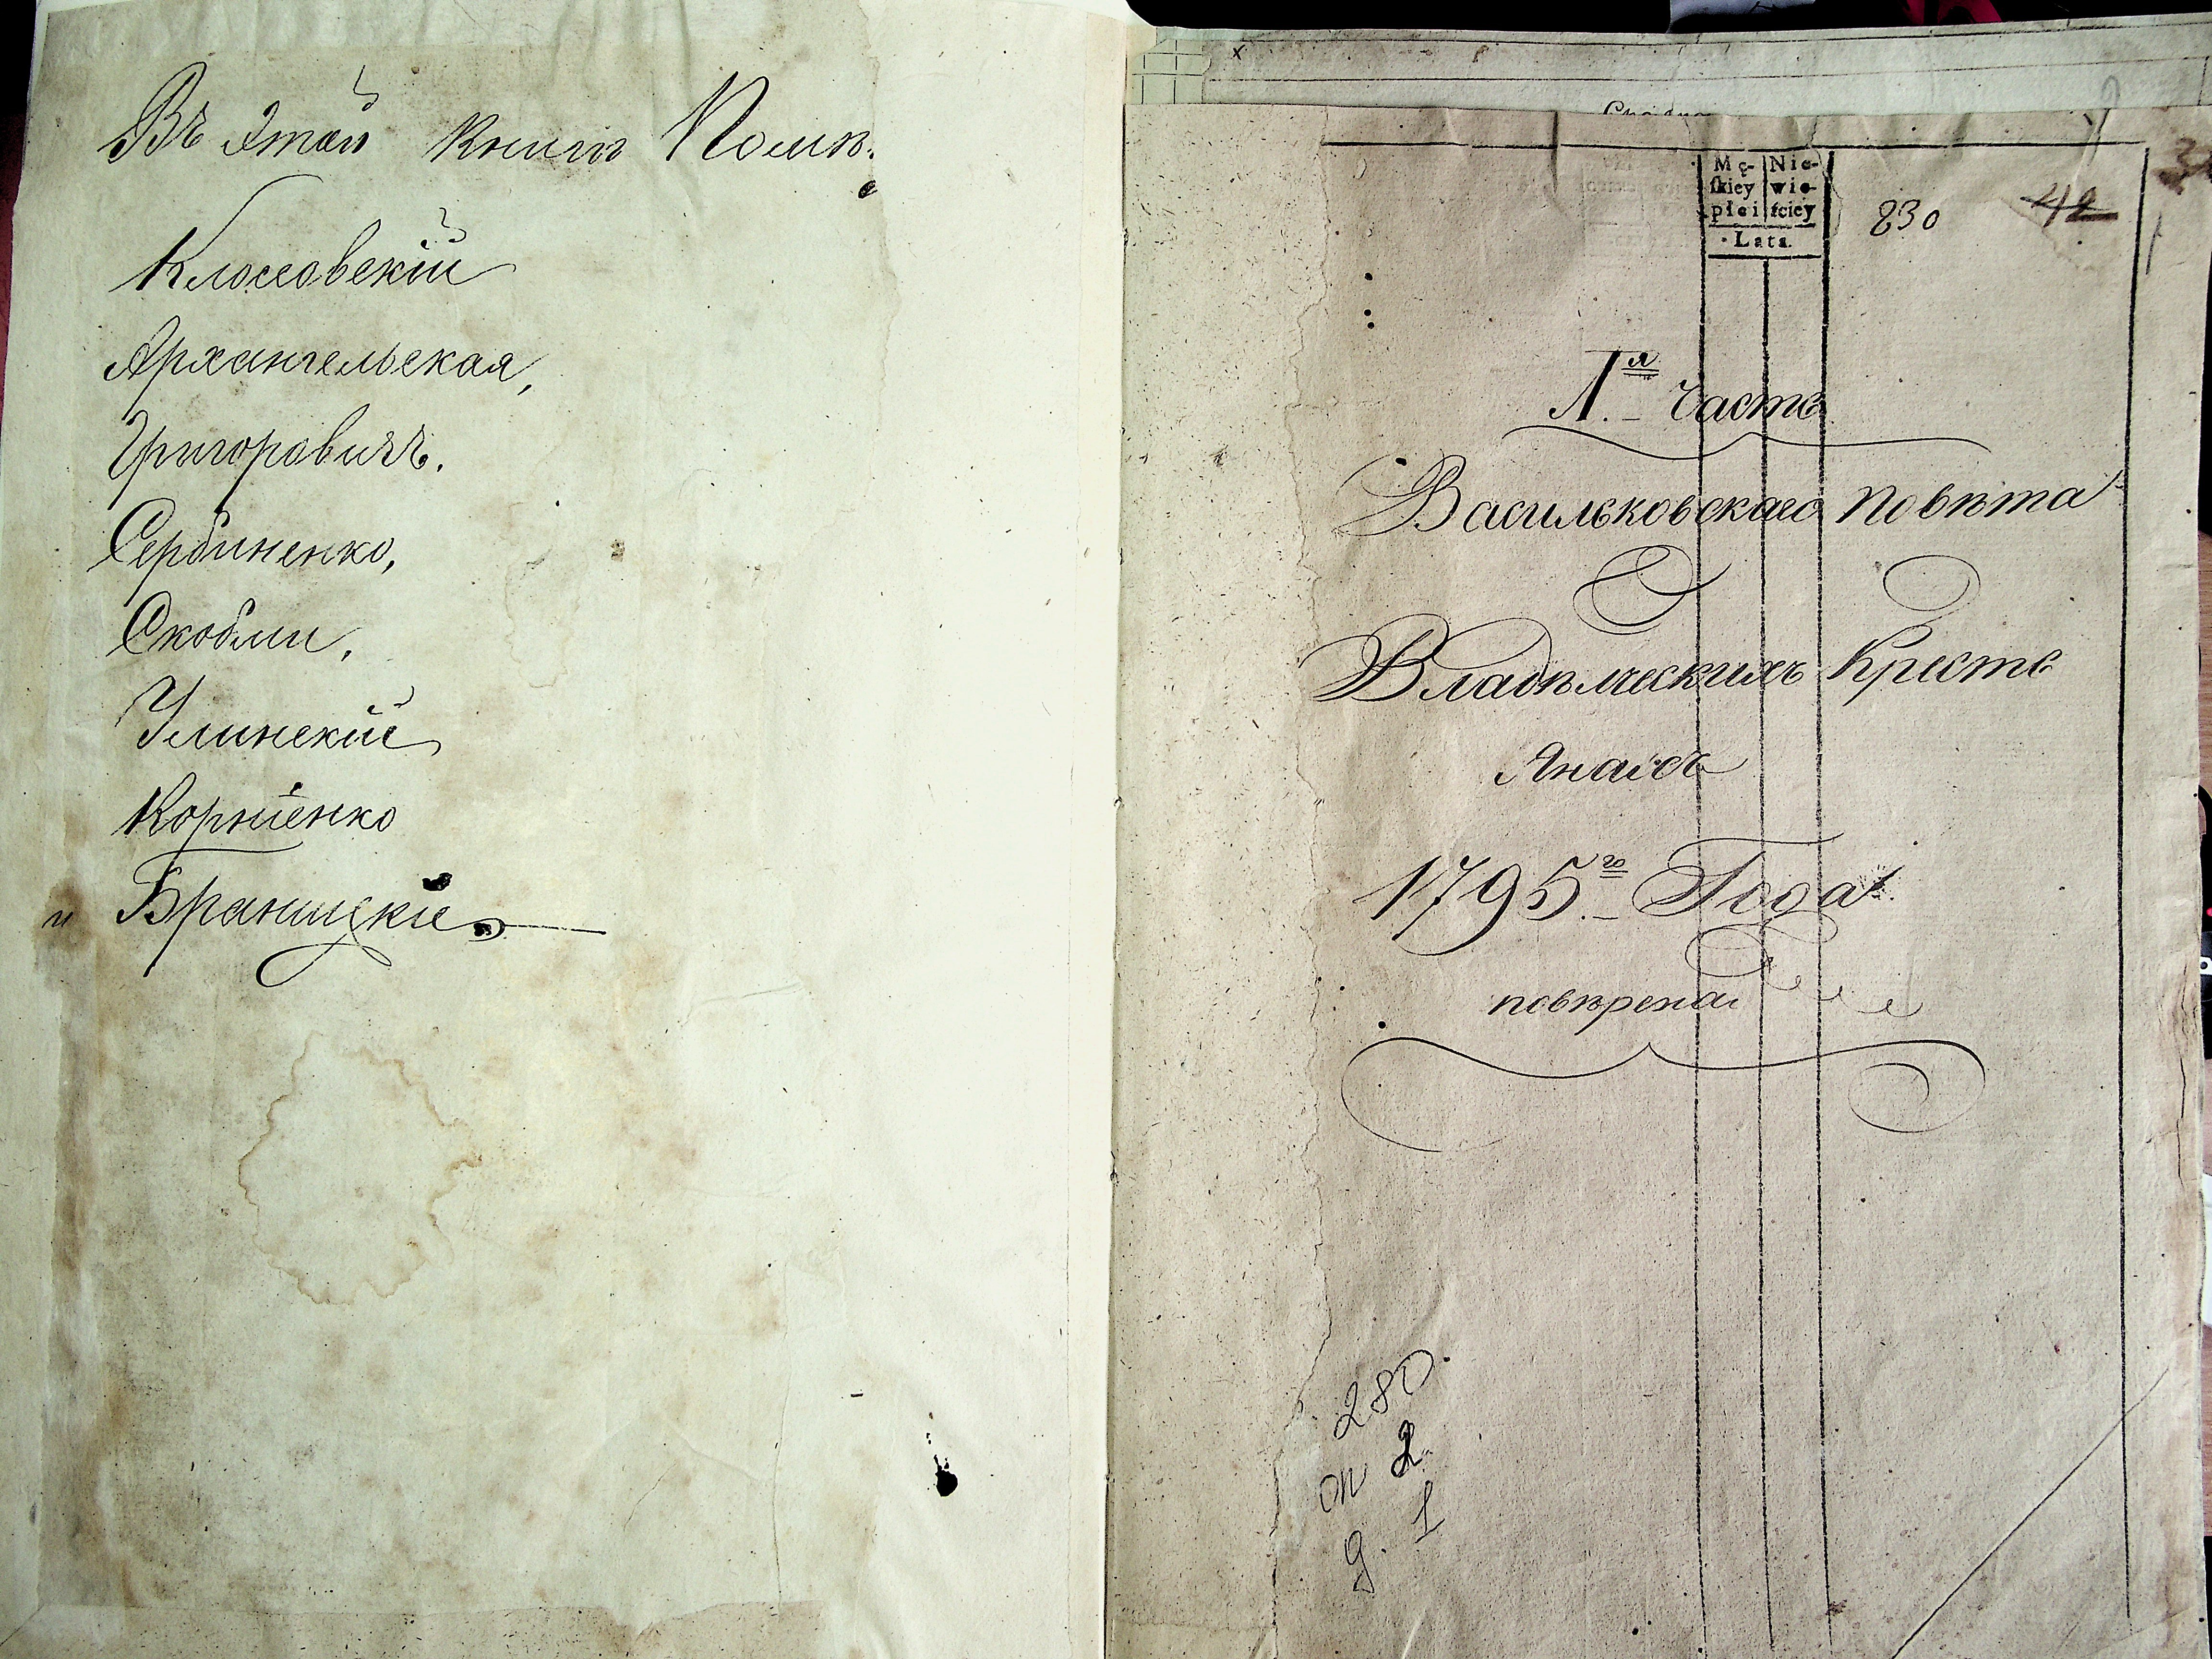 Въ этой книгѣ Помѣ:
Клюссовскій
Архангельская,
Григоровичъ.
Сербиненко,
Скобли,
Улинскій
Корніенко
и Браницкіе
Mę- Nie-
ſkiey wie-
płci ſciey
Lata.
830 42
1.я часть
Васильковскаго повѣта
Владѣлческихъ Крестъ
Янаідъ
1795.го Года
повѣрена
280.
оп 2
д. 1